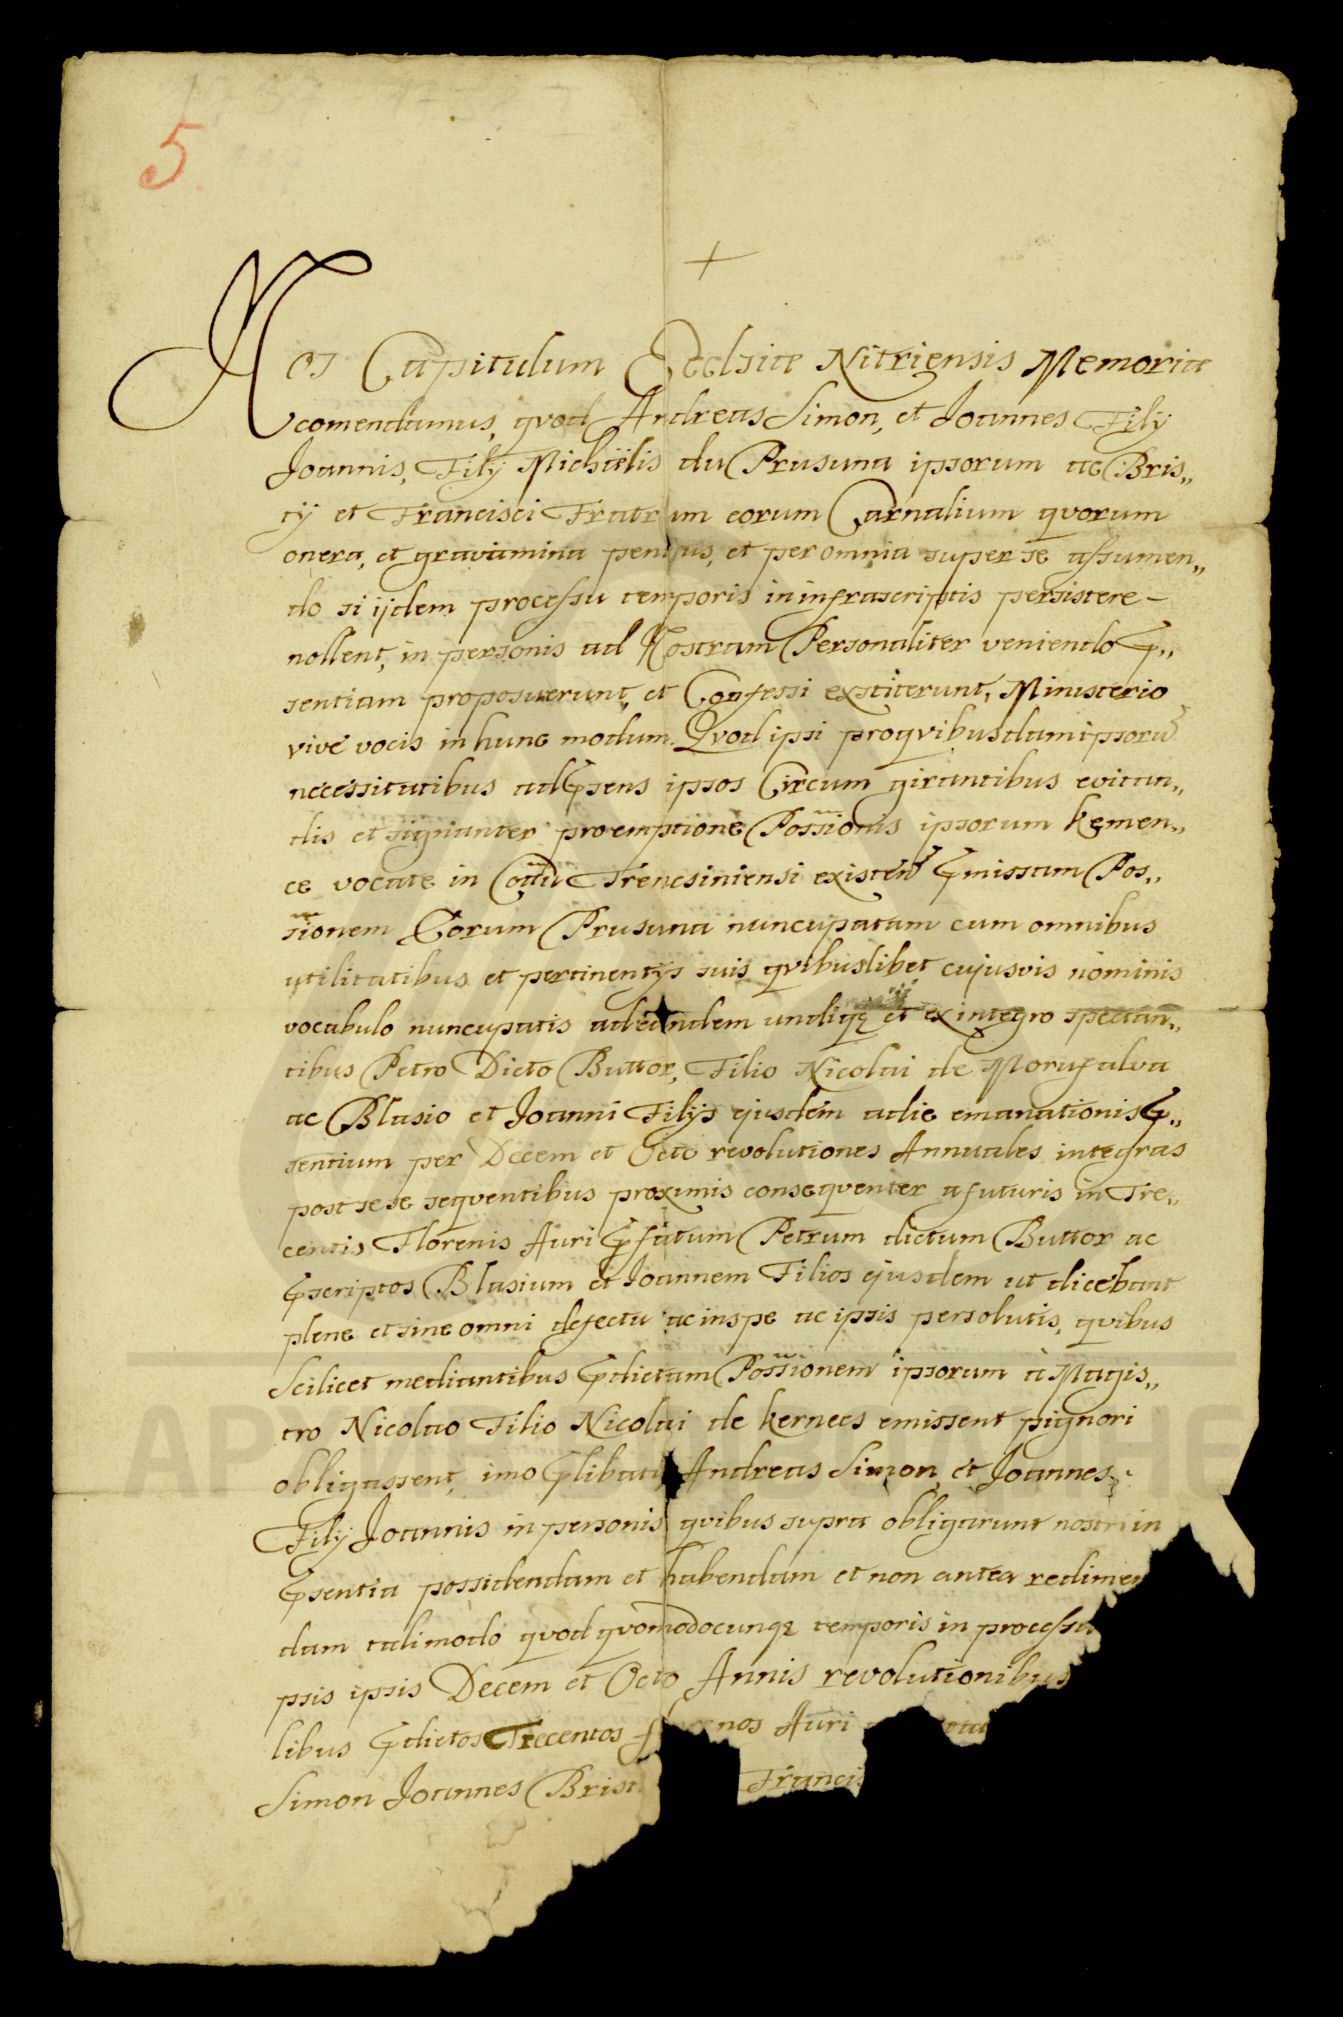 5.
Nos Capitulum Ecclsiae Nitriensis Memoriae
comendamus, qvod Andreas Simon, et Joannes Filÿ
Joannis, Filÿ Michaelis du Prusuna ipsorum ac Bris„
tÿ et Francisci Fratrum eorum Carnalium qvorum
onera, et gravamina penitus, et per omnia super se assumen„
do si ijdem processu temporis in infrascriptis persistere-
nollent, in personis ad Nostram Personaliter veniendo P„
sentiam proposuerunt, et Confessi exstiterunt, Ministerio
vive vocis in hunc modum. Qvod ipsi pro qvibusdam ipsorū
necessitatibus ad Psens ipsos Circum girantibus evitan„
dis et signanter pro emptione Possionis ipsorum kemen„
ce vocate in Cottu Trencsiniensi existen Pmissam Pos„
sionem Eorum Prusuna nuncupatam cum omnibus
utilitatibus et pertinentÿs suis qvibuslibet cujusvis nominis
vocabulo nuncupatis ad eandem undiqꝫ et ex integro spectan„
tibus Petro Dicto Buttor, Filio Nicolai de Morufalva
ac Blasio et Joanni Filÿs ejusdem a die emanationis P„
sentium per Decem et Octo revolutiones Annuales integras
post sese seqventibus proximis conseqventer afuturis in Tre„
centis Florenis Auri Pfatum Petrum dictum Buttor ac
Pscriptos Blasium et Joannem Filios ejusdem ut dicebant
plene et sine omni defectu ac inspe ac ipsis persolutis, qvibus
Scilicet mediantibus Pdictam Possionem ipsorum à Magis„
tro Nicolao Filio Nicolai de kernecs emissent pignori
obligassent, imo Plibati Andreas Simon, et Joannes
Filÿ Joannis in personis qvibus supra obligarunt nostri in
Psentia possidendam et habendam et non antea redimen
dam tali modo qvod qvomodocunqꝫ temporis in processu
psis ipsis Decem et Octo Annis revolutionibus
libus Pdictos Trecentos nos Auri
Simon Joannes Brist Francis